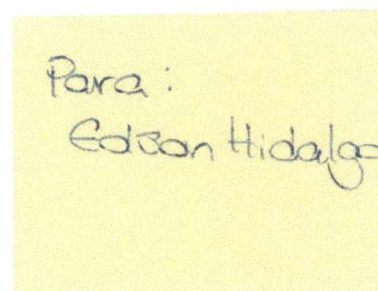 Para:
Edson Hidalgo